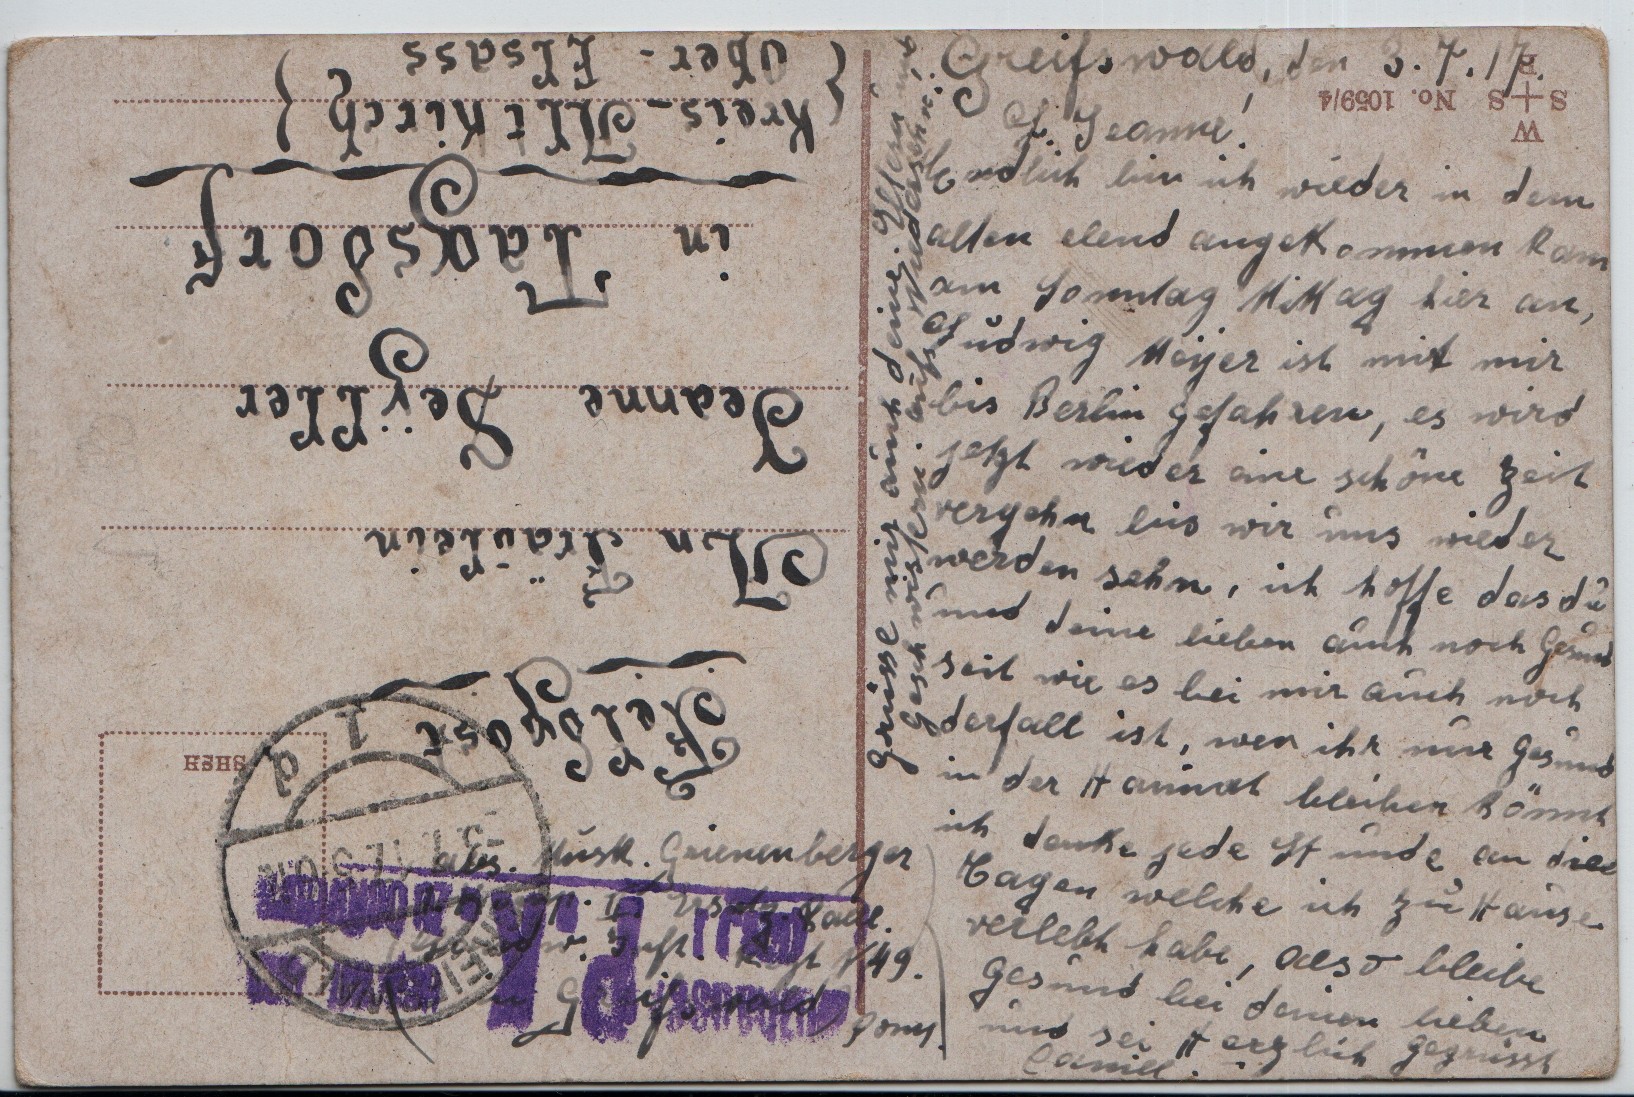 Greifswald, den 3. 7. 17.
L. Jeanne!
Endlich bin ich wieder in dem
alten elend angekommen kam
am Sonntag Mittag hier an,
Ludwig Meyer ist mit mir
bis Berlin gefahren, es wird
jetzt wieder eine schöne Zeit
vergehn bis wir uns wieder
werden sehn, ich hoffe das du
und deine lieben auch noch Gesund
seit wie es bei mir auch noch
derfall ist, wen ihr nur Gesund
in der Haimat bleiben könnt
ich denke jede Stunde an die
Tagen welche ich zu Hause
verlebt habe, also bleibe
Gesund bei deinen lieben
und sei Herzlich gegrüsst
Camill.
Grüsse mir auch deine
Geschwistern. aufs
Feldpost
An Fräulein
Jeanne Deÿller
in Tagsdorf
Kreis-Altkirch
Ober-Elsass
abs. Musk. Grienenberger
Ersatz
49.
in Greifswald
Pom.
W
S+S No. 1059/4
B